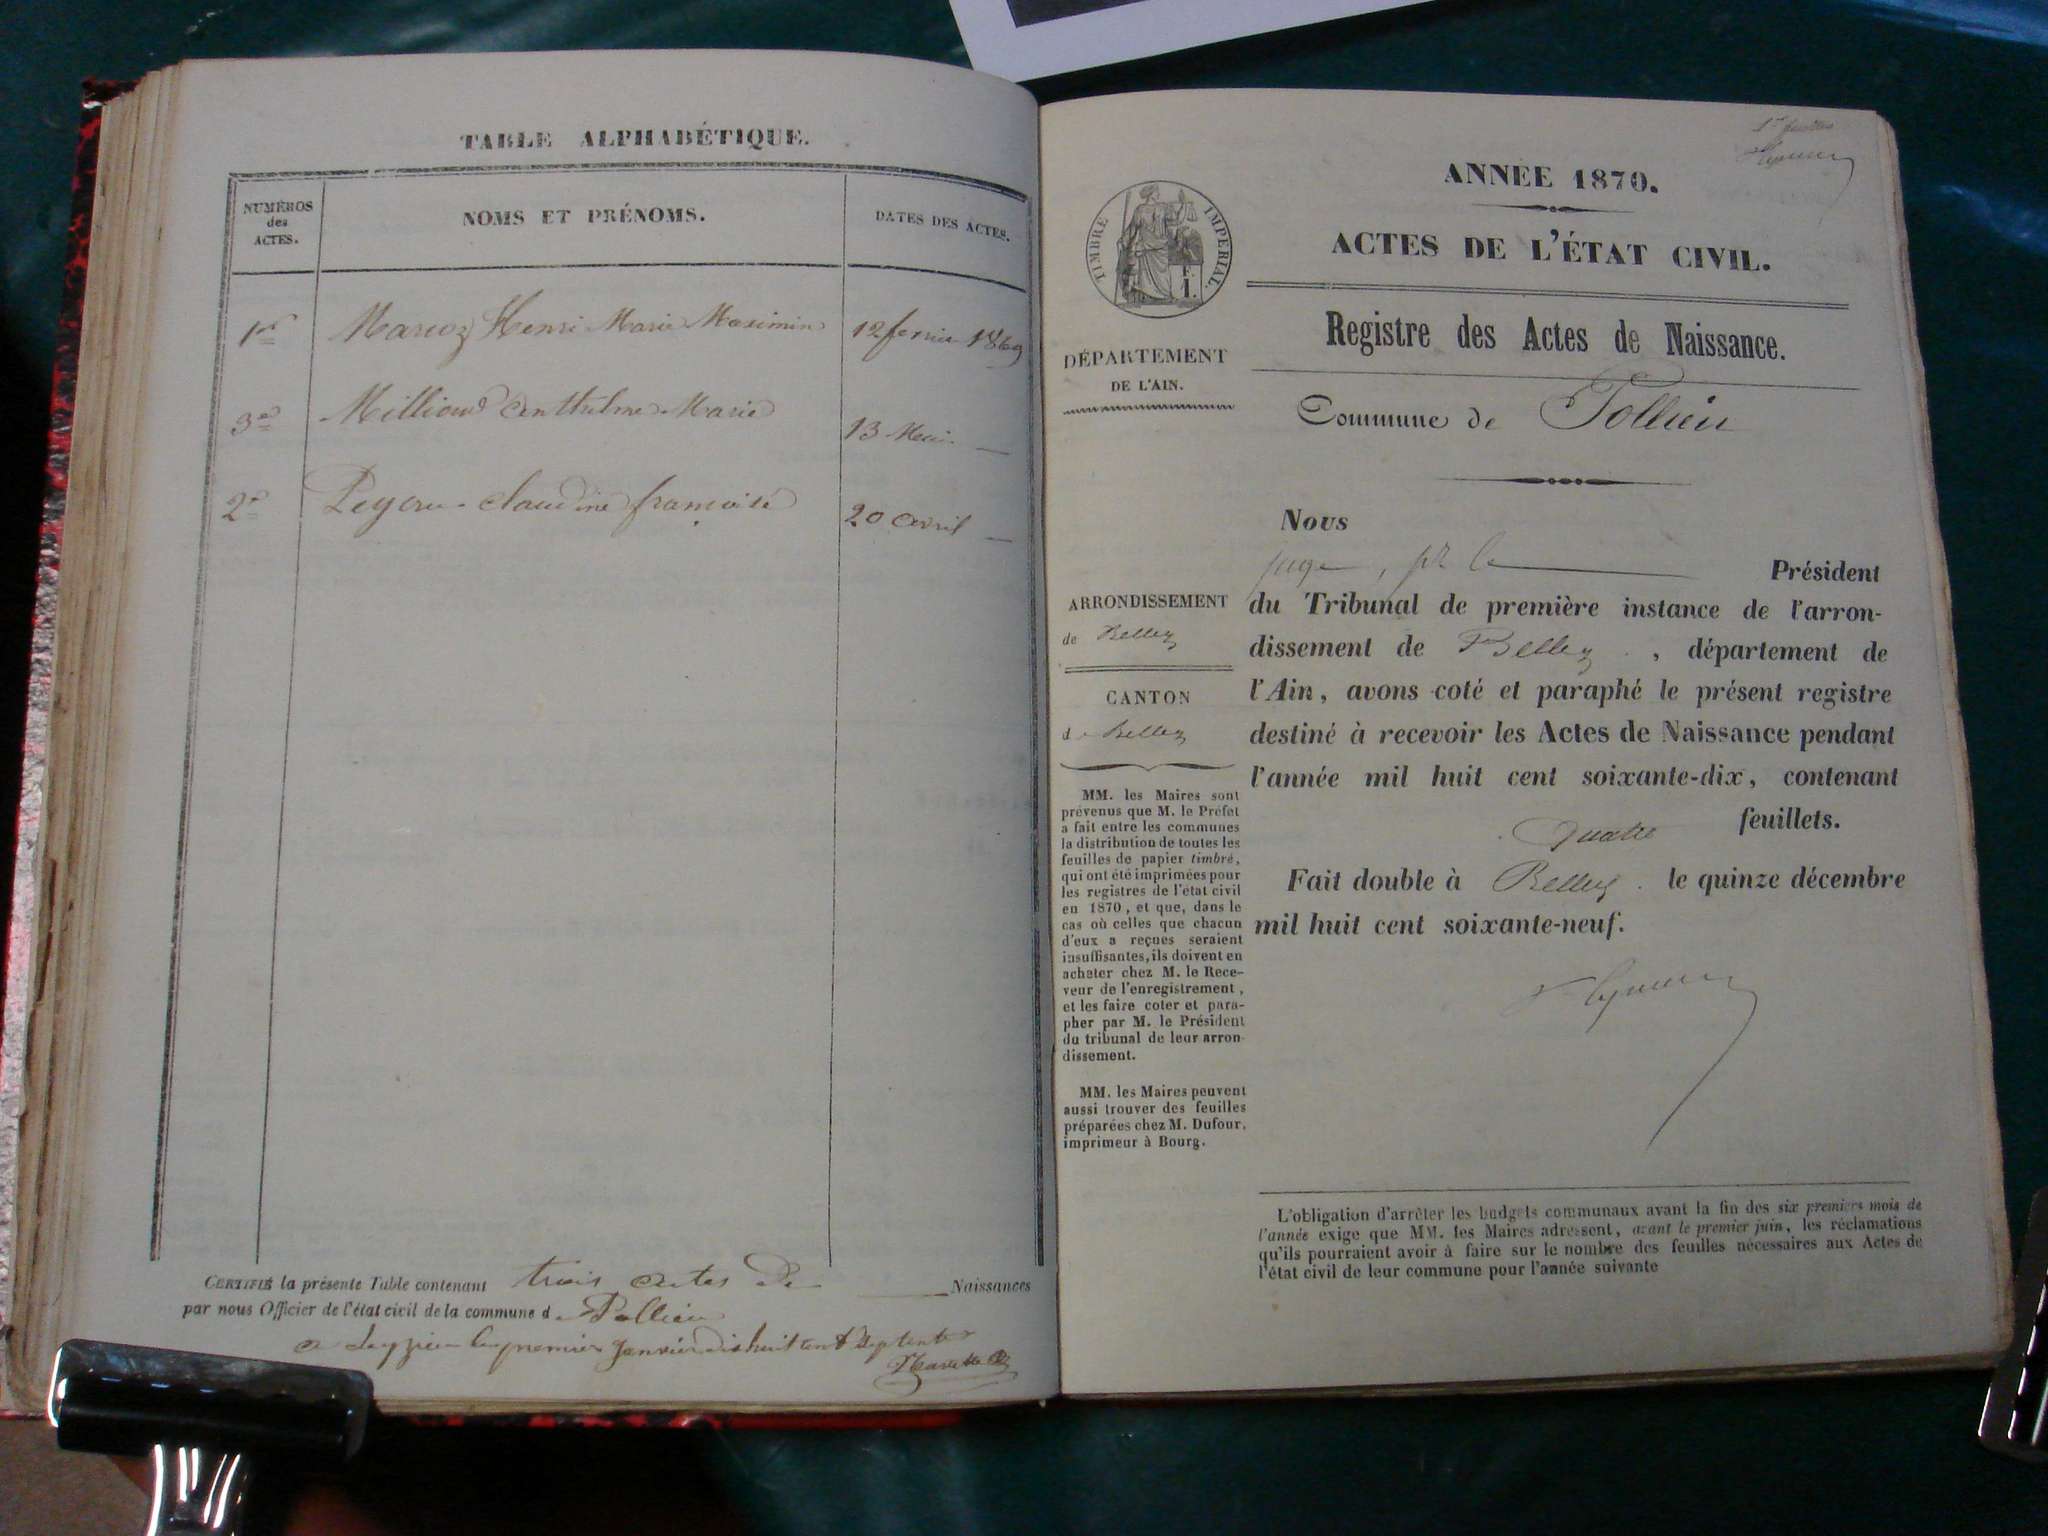 TABLE ALPHABÉTIQUE.
NUMÉROS
des
ACTES.
NOMS ET PRÉNOMS.
DATES DES ACTES.
1er Marcoz Henri Marie Maximin 12 fevrier 1869
3e Milliand Anthelme Marie 13
2e claudine françoise 20 avril
CERTIFIÉ la présente Table contenant trois actes de Naissances
par nous Officier de l'état civil de la commune de Pollieu
a le premier Janvier dix huit cent septente
ANNÉE 1870.
ACTES DE L'ÉTAT CIVIL.
TIMBRE IMPERIAL.
Registre des Actes de Naissance.
DÉPARTEMENT
DE L'AIN.
Commune de Pollieu
Nous
juge, pr le Président
ARRONDISSEMENT
de Belley
CANTON
de Belley
du Tribunal de première instance de l'arron-
dissement de Belley, département de
l'Ain, avons coté et paraphé le présent registre
destiné à recevoir les Actes de Naissance pendant
l'année mil huit cent soixante-dix, contenant
quatre feuillets.
Fait double à Belley le quinze décembre
mil huit cent soixante-neuf.
MM. les Maires sont
prévenus que M. le Préfet
a fait entre les communes
la distribution de toutes les
feuilles de papier timbré,
qui ont été imprimées pour
les registres de l'état civil
en 1870, et que, dans le
cas où celles que chacun
d'eux a reçues seraient
insuffisantes, ils doivent en
acheter chez M. le Rece-
veur de l'enregistrement,
et les faire coter et para-
pher par M. le Président
du tribunal de leur arron-
dissement.
MM. les Maires peuvent
aussi trouver des feuilles
préparées chez M. Dufour,
imprimeur à Bourg.
L'obligation d'arrêter les budgets communaux avant la fin des six premiers mois de
l'année exige que MM. les Maires adressent, avant le premier juin, les réclamations
qu'ils pourraient avoir à faire sur le nombre des feuilles nécessaires aux Actes de
l'état civil de leur commune pour l'année suivante